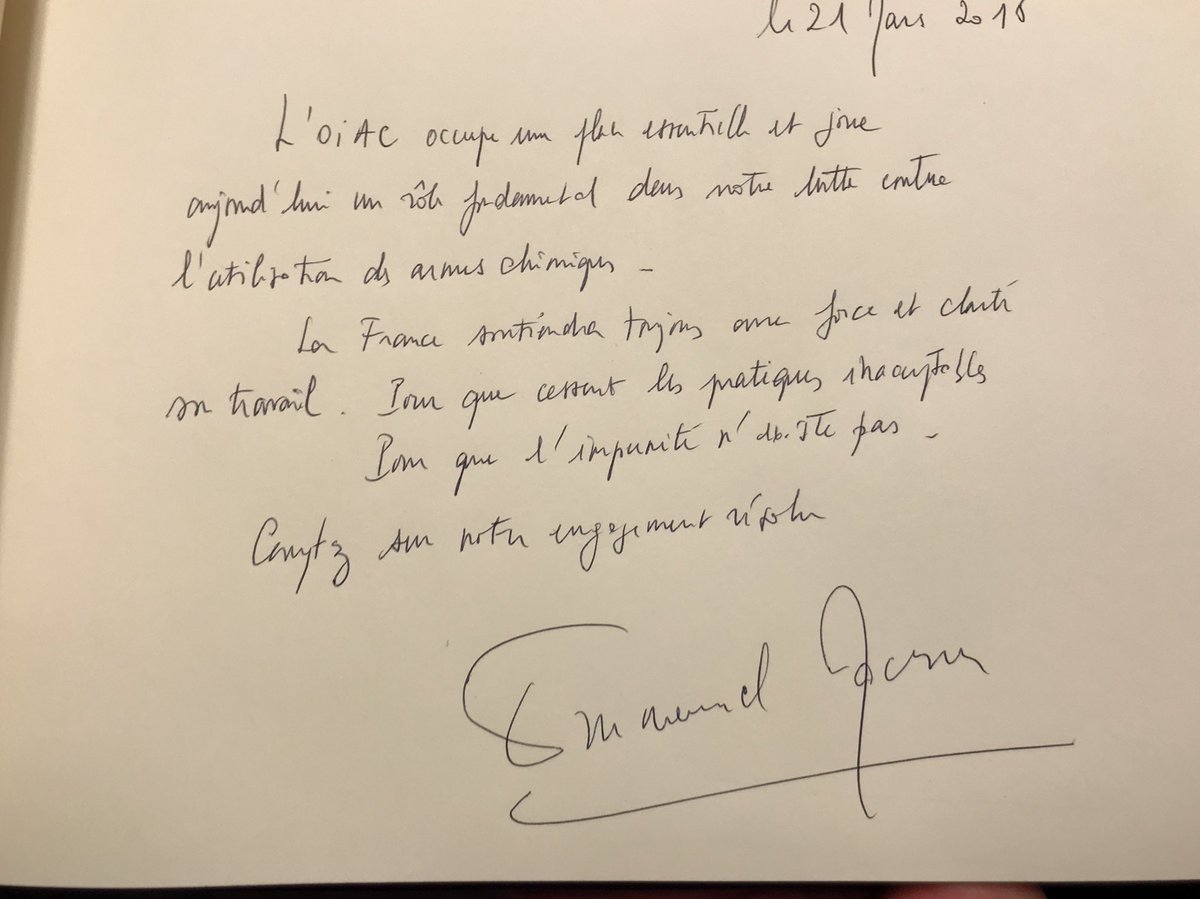 le 21 Mars 2018
L'OIAC occupe une place essentielle et joue
aujourd'hui un rôle fondamental dans notre lutte contre
l'utilisation des armes chimiques -
La France soutiendra toujours avec force et clarté
son travail. Pour que cessent les pratiques inacceptables
Pour que l'impunité n'existe pas -
Comptez sur notre engagement résolu
Emmanuel Macron